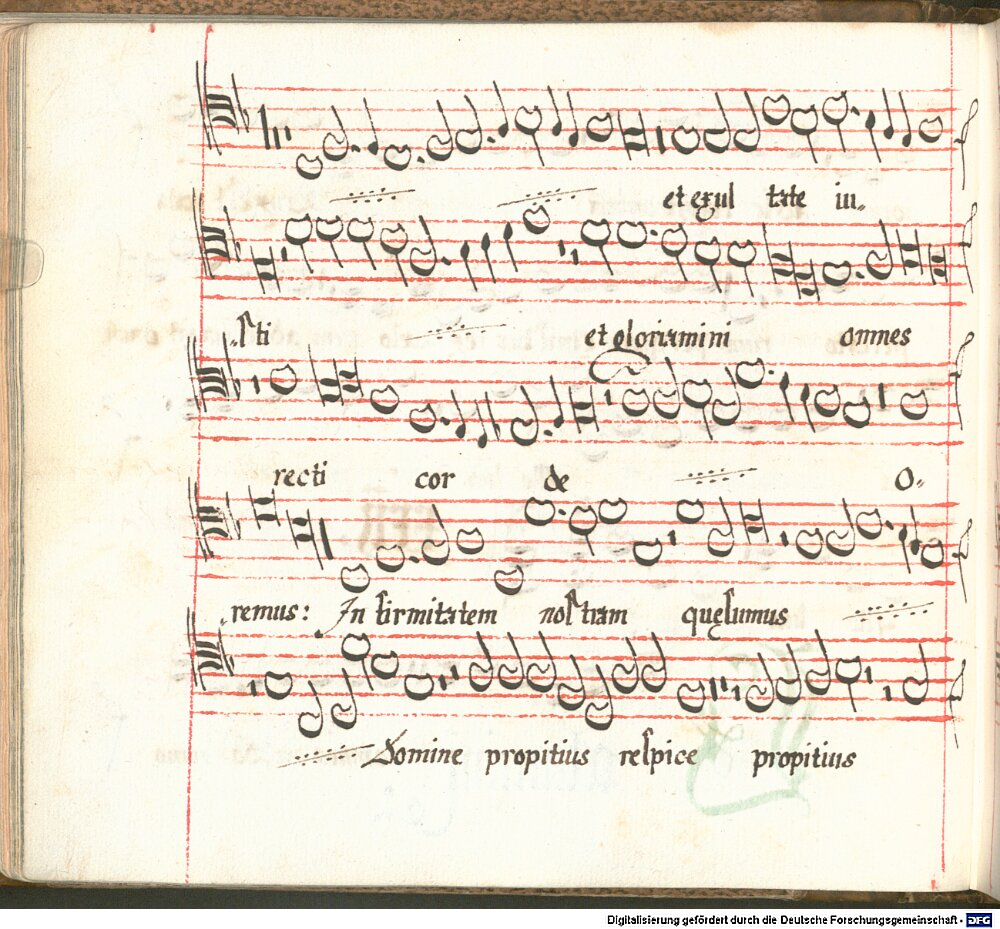 et exul tate iu-
sti et gloriamini omnes
recti cor de O-
remus: Infirmitatem nostram quęsumus
Domine propitius respice propitius
Digitalisierung gefördert durch die Deutsche Forschungsgemeinschaft - DFG